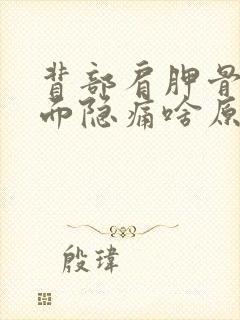 背部肩胛骨
而隐痛啥原
殷瑋